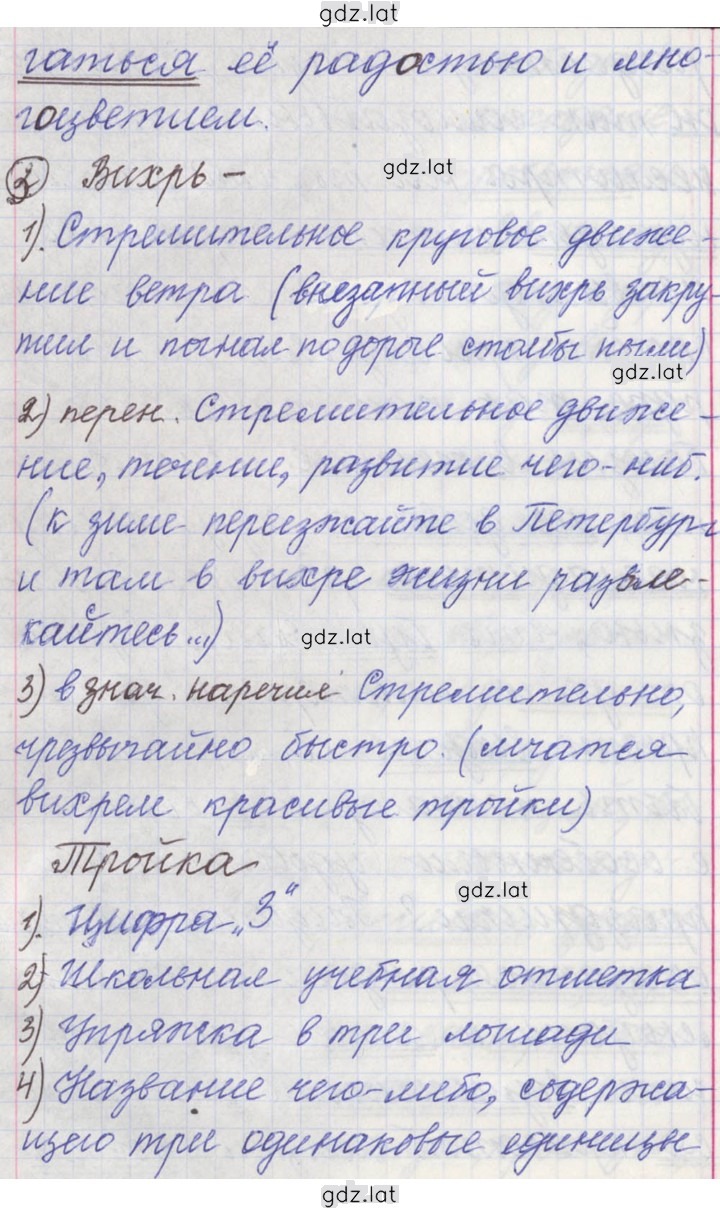 gdz.lat
гаться её радостью и мно-
гоцветием.
gdz.lat
③ Вихрь –
1). Стремительное круговое движе-
ние ветра (внезапный вихрь закру-
тил и погнал по дороге столбы пыли)
gdz.lat
2) перен. Стремительное движе-
ние, течение, развитие чего-ниб.
(к зиме переезжайте в Петербург
и там в вихре жизни развле-
кайтесь...)
gdz.lat
3) в знач. наречия Стремительно,
чрезвычайно быстро. (мчатся
вихрем красивые тройки)
Тройка
gdz.lat
1). Цифра „3“
2) Школьная учебная отметка
3) Упряжка в три лошади
4) Название чего-либо, содержа-
щего три одинаковые единицы
gdz.lat